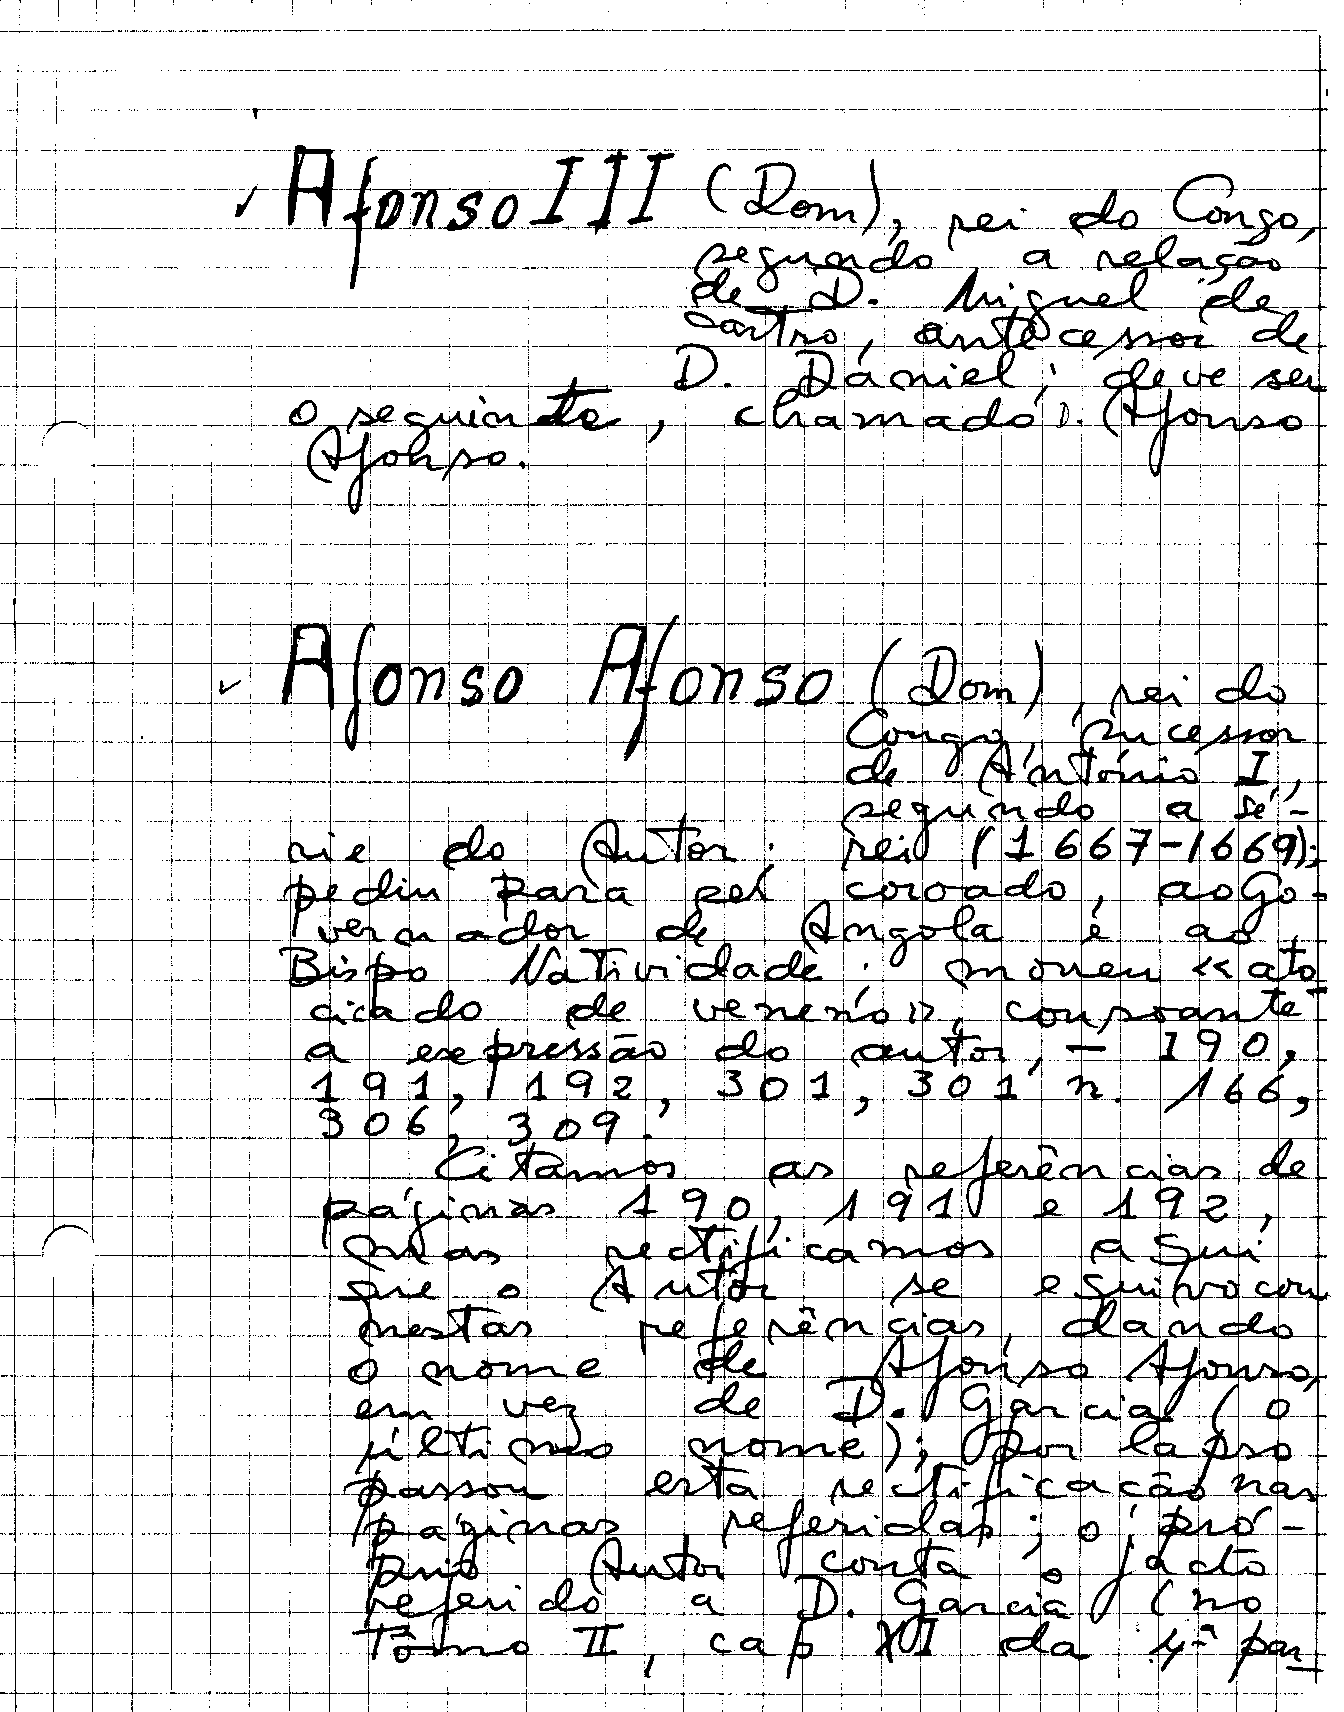 ✓ Afonso III (Dom), rei do Congo,
segundo a relação
de D. Miguel de
Castro, antecessor de
D. Daniel; deve ser
o seguinte, chamado D. Afonso
Afonso.
✓ Afonso Afonso (Dom), rei do
Congo, sucessor
de António I,
segundo a sé-
rie do Autor: rei (1667-1669);
pediu para ser coroado, ao Go-
vernador de Angola e ao
Bispo Natividade: morreu «ato
cicado de veneno», consoante
a expressão do autor, — 190,
191, 192, 301, 301 n. 166,
306, 309.
Citamos as referências de
páginas 190, 191 e 192,
mas rectificamos aqui
que o Autor se equivocou
nestas referências, dando
o nome de Afonso Afonso,
em vez de D. Garcia (o
último nome); por lapso
passou esta rectificação nas
páginas referidas; o pró-
prio Autor conta o facto
referido a D. Garcia (no
Tômo II, cap XI da 4ª par_